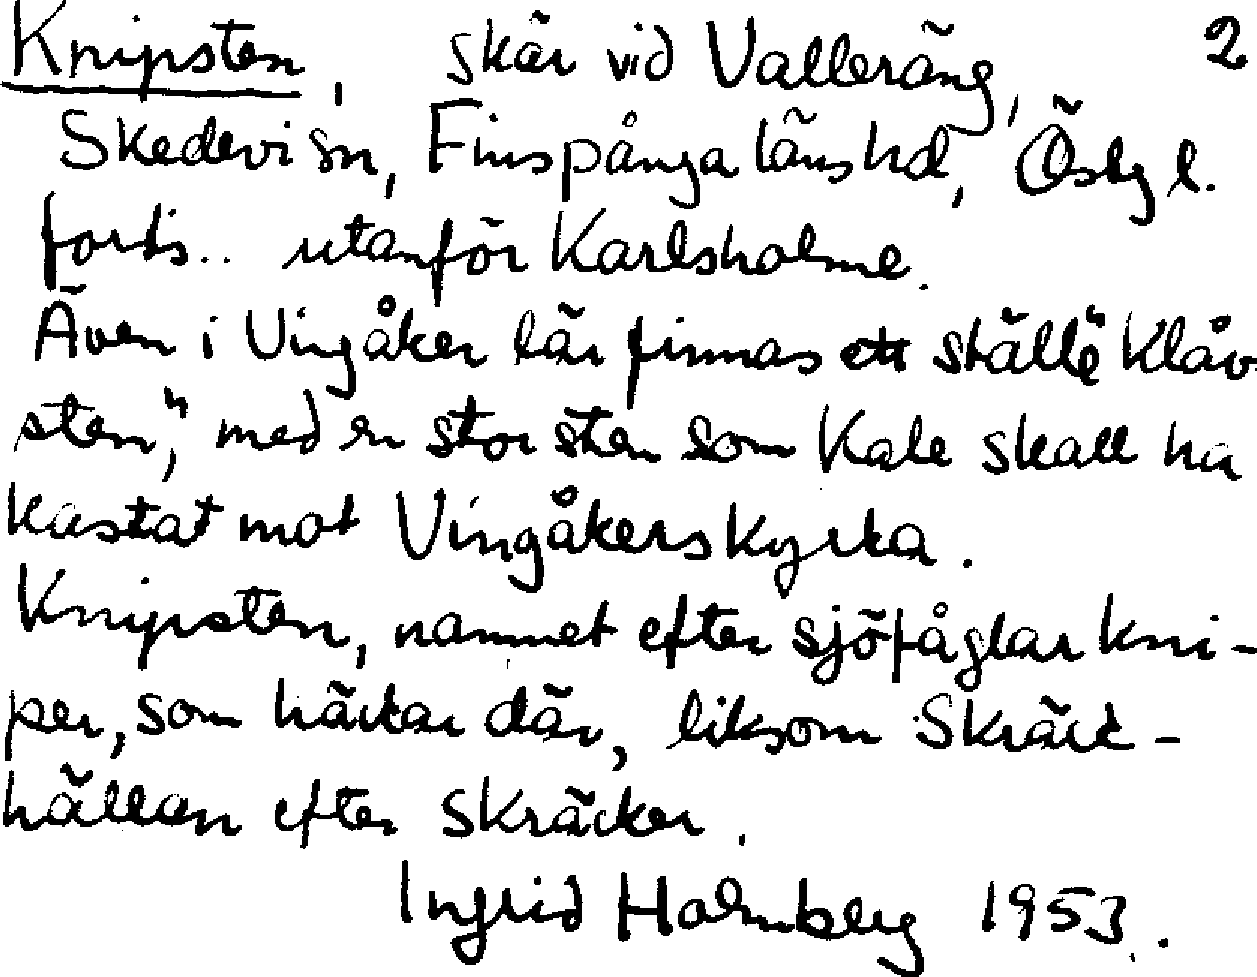 Knipsten, skär vid Valleräng, 2
Skedevi sn, Finspånga läns hd, Östg l.
forts.. utanför Karlsholme.
Även i Vingåker lär finnas ett ställe "Klåv-
sten", med en stor sten som Kale skall ha
kastat mot Vingåkers kyrka.
Knipsten, namnet efter sjöfåglar kni-
per, som häckar där, liksom Skräck-
hällan efter skräcker.
Ingrid Holmberg 1953.